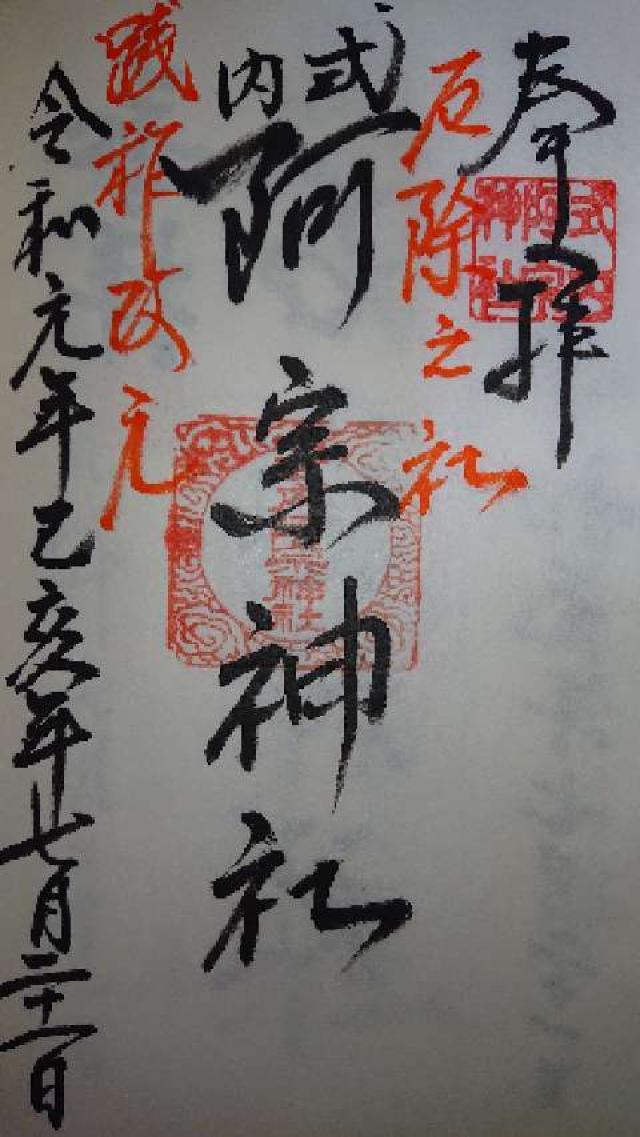 奉拝
式内阿宗神社
厄除之社
式内
阿宗神社
践祚改元
令和元年己亥年七月二十一日